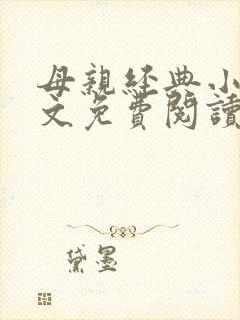 母親經典小
文免費閱讀
黛墨